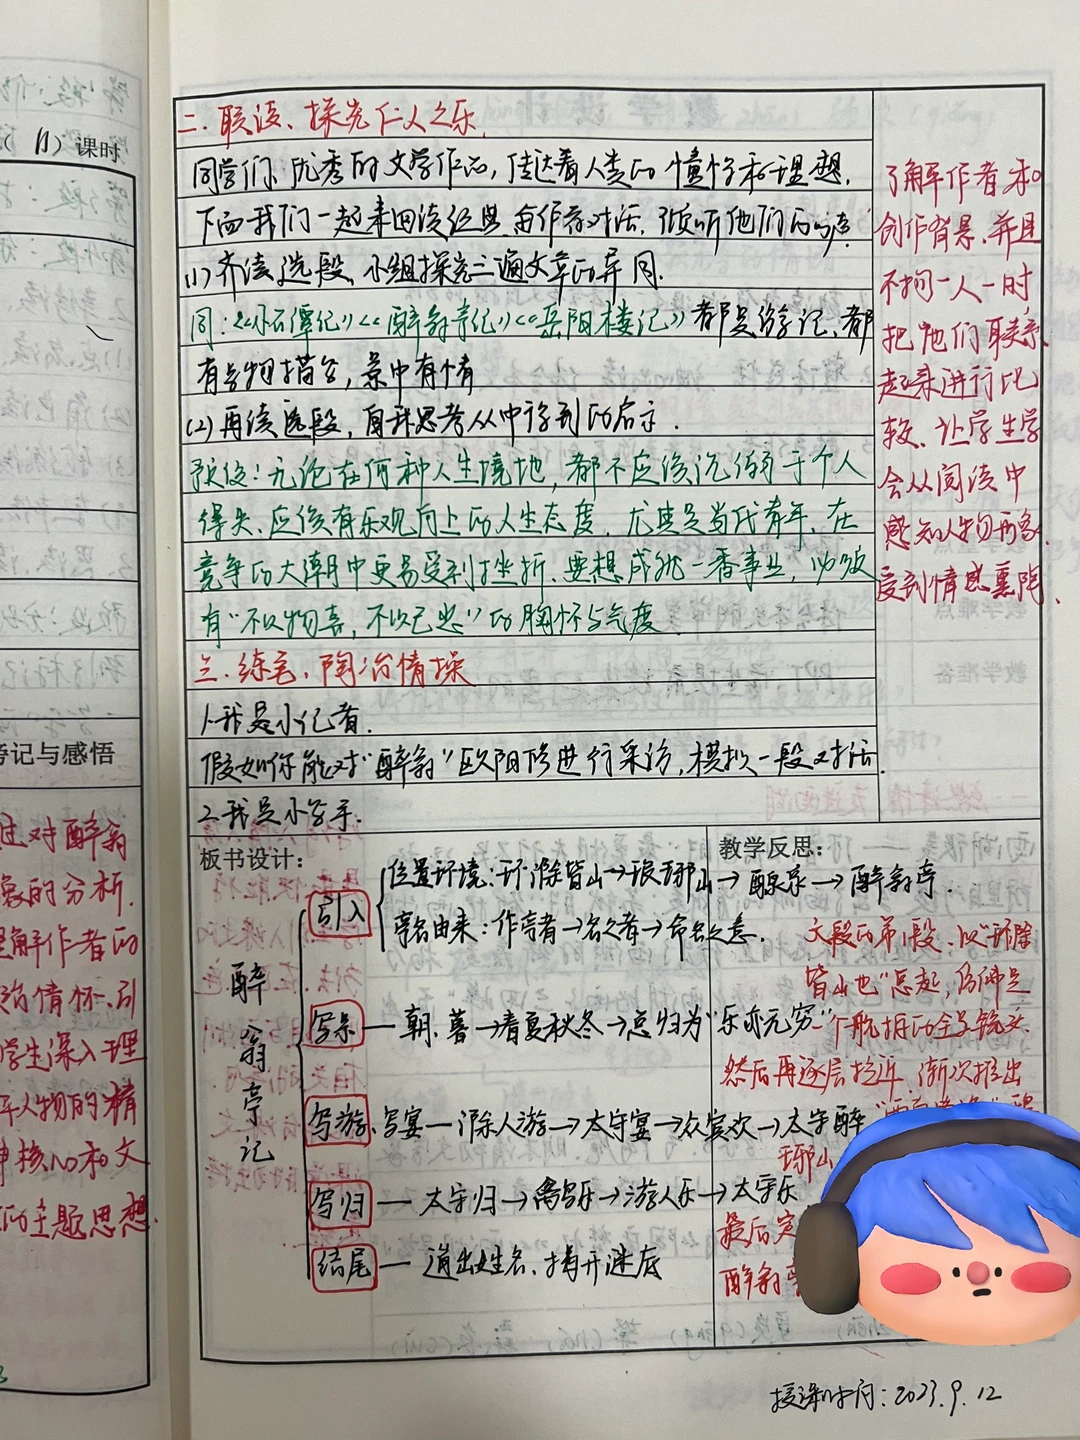 （11）课时
旁记与感悟
过对醉翁
象的分析.
理解作者的
政治情怀.引
学生深入理
解人物的精
神核心和文
的主题思想.
二.联读、探究仁人之乐.
同学们、优秀的文学作品,传达着人类的憧憬和理想.
下面我们一起来回读经典与作者对话.倾听他们的心声.
(1)齐读选段,小组探究三篇文章的异同.
同:《小石潭记》《醉翁亭记》《岳阳楼记》都是游记、都
有景物描写,景中有情
(2)再读选段,自我思考从中得到的启示.
预设:无论在何种人生境地,都不应该沉溺于个人
得失.应该有乐观向上的人生态度.尤其是当代青年.在
竞争的大潮中更易受到挫折.要想成就一番事业,必须
有“不以物喜,不以己悲”的胸怀与气度.
三.练写、陶冶情操
1.我是小记者.
假如你能对“醉翁”欧阳修进行采访,模拟一段对话.
2.我是小写手.
了解作者和
创作背景.并且
不拘一人一时,
把他们联系
起来进行比
较、让学生学
会从阅读中
感知人物形象.
受到情感熏陶.
板书设计:
醉翁亭记
引入
位置环境:环滁皆山→琅琊山→酿泉→醉翁亭.
亭名由来:作亭者→名之者→命名之意.
写景—朝.暮→春夏秋冬→总归为“乐亦无穷”
写游.写宴—滁人游→太守宴→众宾欢→太守醉
写归—太守归→禽鸟乐→游人乐→太守乐
结尾—道出姓名、揭开谜底
教学反思:
文段的第1段、以“环滁
皆山也”总起,仿佛是
一个航拍的全景镜头.
然后再逐层拉近、渐次推出
琊山
最后定
醉翁亭
授课时间:2023.9.12